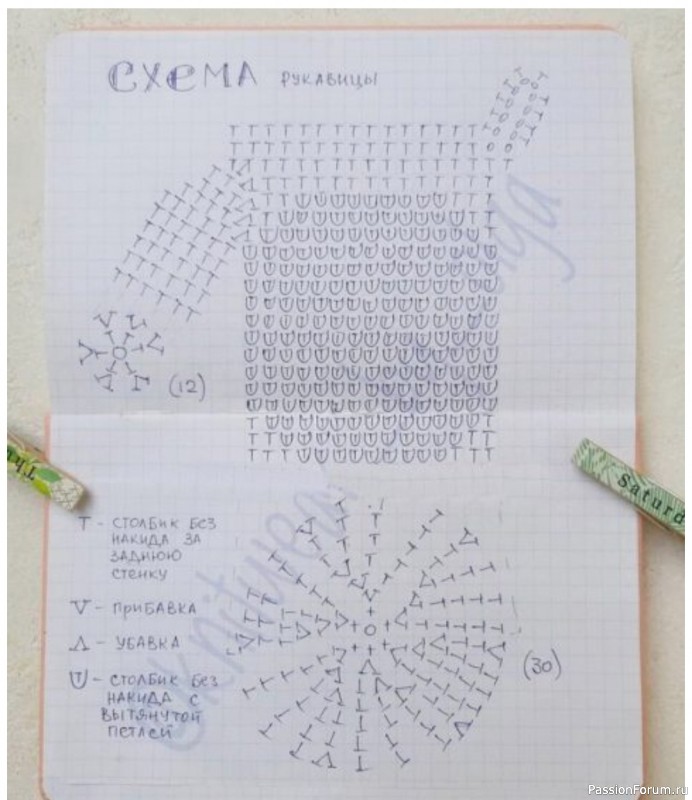 СХЕМА РУКАВИЦЫ
(12)
Т - СТОЛБИК БЕЗ
НАКИДА ЗА
ЗАДНЮЮ
СТЕНКУ
V - ПРИБАВКА
Λ - УБАВКА
U - СТОЛБИК БЕЗ
НАКИДА С
ВЫТЯНУТОЙ
ПЕТЛЕЙ
(30)
Thu
Saturd
PassionForum.ru